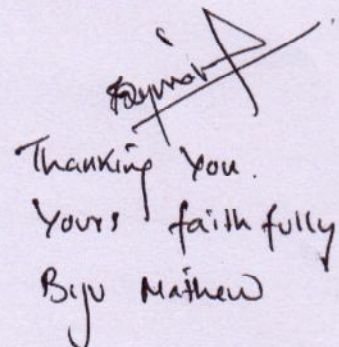 Thanking You.
Yours faithfully
Biju Mathew